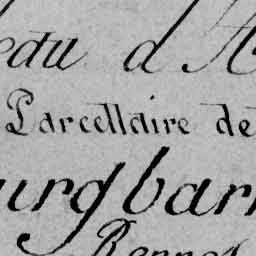 edu d'A
Parcellaire de
urgbarr
Rennes